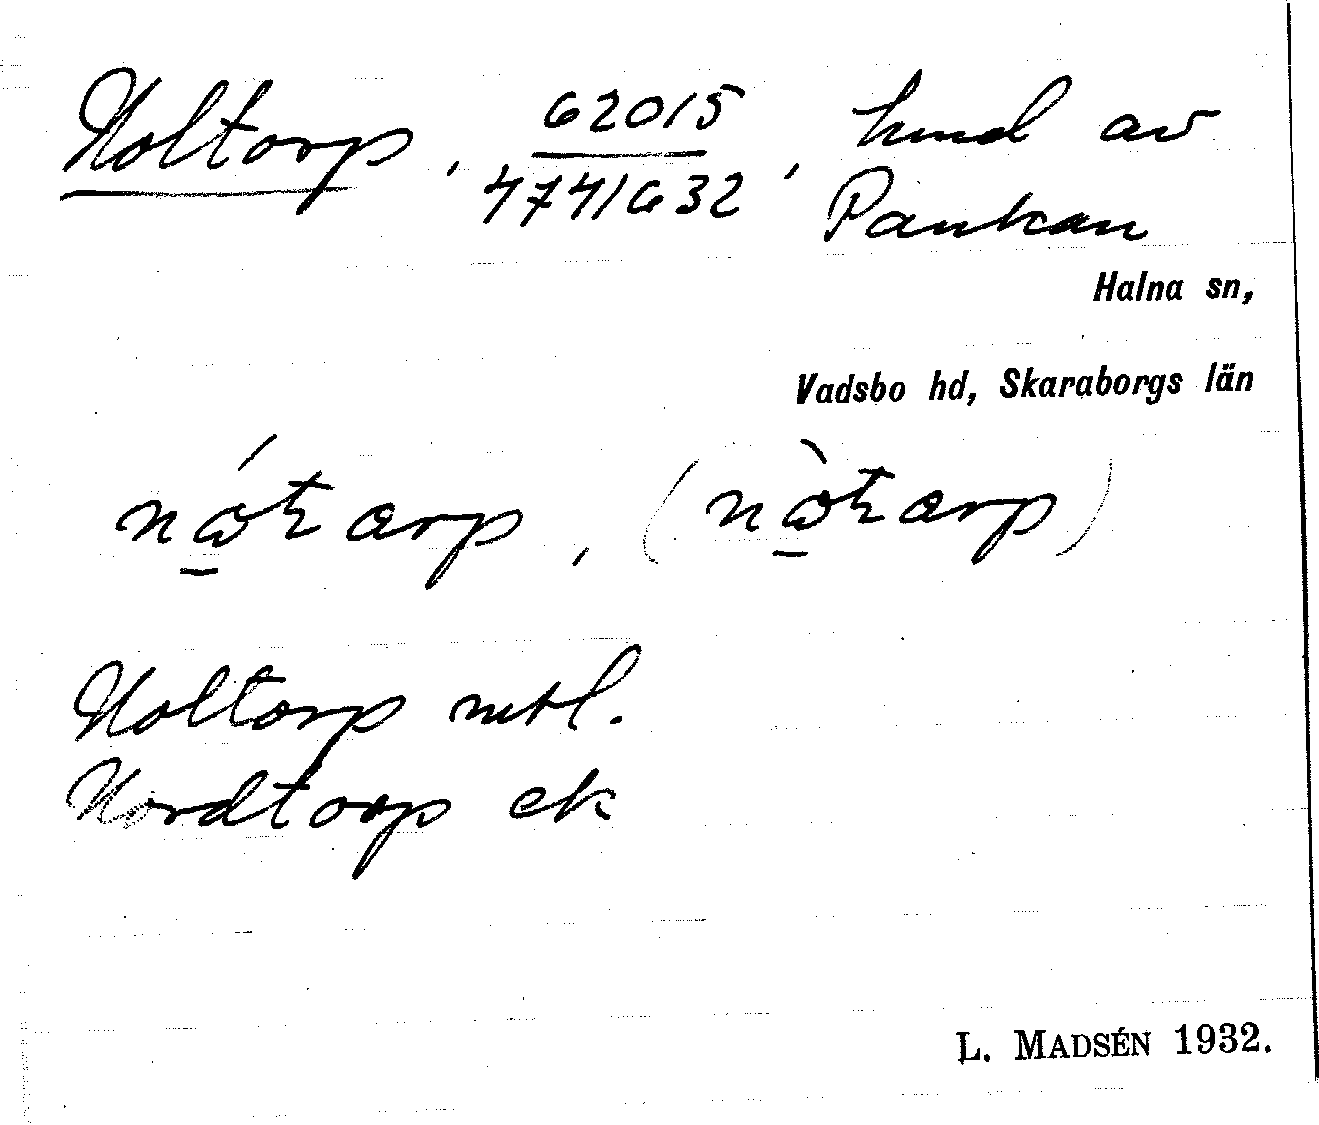 Noltorp, 62015/4741632, hmd av
Pankan
Halna sn,
Vadsbo hd, Skaraborgs län
nó̱tærp, (nò̱tærp)
Noltorp mtl.
Nordtorp ek
L. MADSÉN 1932.